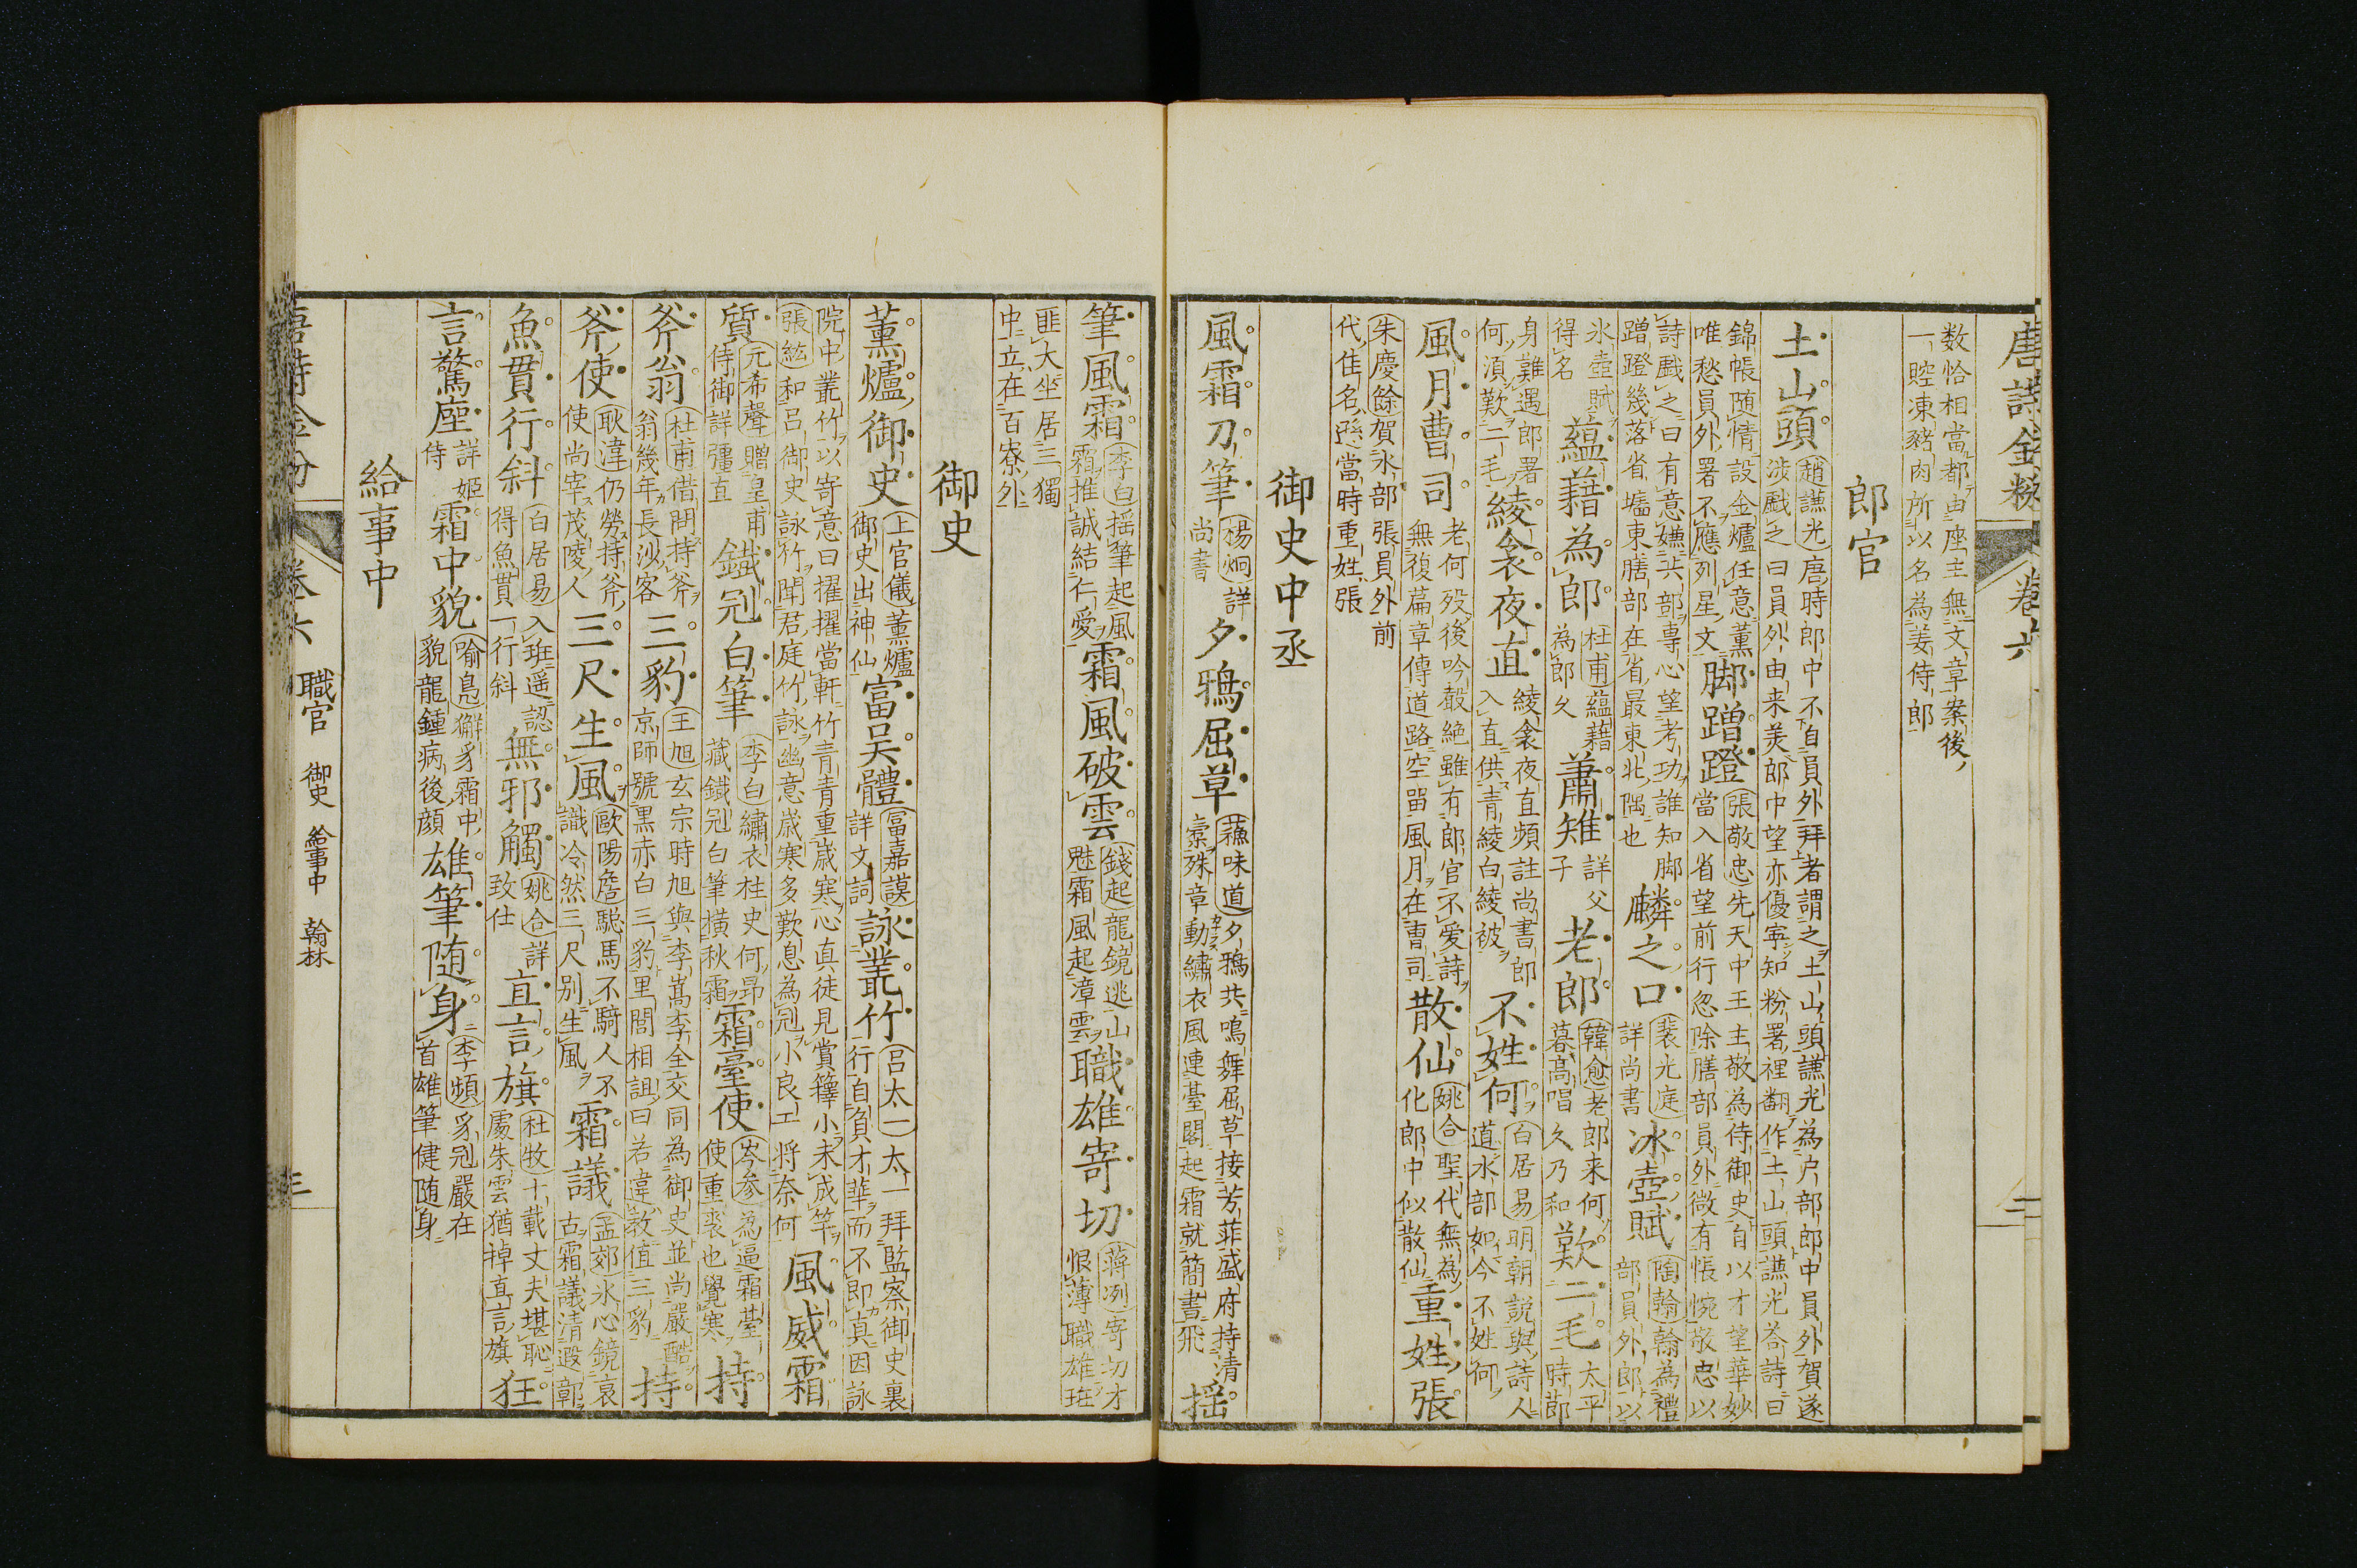 唐詩金粉 卷六 二
数恰相當都由座主無文章案後
一腔凍豬肉所以名為姜侍郎
郎官
土山頭 趙謙光 唐時郎中不自員外拜者謂之土山頭謙光為户部郎中員外賀遂
渉戯之曰員外由来美郎中望亦優寧知粉署裡翻作土山頭謙光荅詩曰
錦帳随情設金爐任意薫
唯愁員外署不應列星文 脚蹭蹬 張敬忠 先天中王主敬為侍御史自以才望華妙
當入省望前行忽除膳部員外微有悵惋敬忠以
詩戯之曰有意嫌兵部專心望考功誰知脚
蹭蹬幾落省墻東膳部在省最東北隅也 麟之口 裴光庭
詳尚書 冰壺賦 陶翰 翰為禮
部員外郎以
氷壺賦
得名 蘊藉為郎 杜甫 蘊藉
為郎久 蕭雉 詳父
子 老郎 韓愈 老郎来何
暮高唱久乃和 歎二毛 太平
時節
身難遇郎署
何湏歎二毛 綾衾夜直 綾衾夜直頻註尚書郎
入直供青綾白綾被 不姓何 白居易 明朝説與詩人
道水部如今不姓何
風月曹司 老何殁後吟聲絶雖有郎官不愛詩
無復篇章傳道路空畱風月在曹司 散仙 姚合 聖代無為
化郎中似散仙 重姓張
朱慶餘 賀水部張員外前
代佳名遜當時重姓張
御史中丞
風霜刀筆 楊炯 詳
尚書 夕鴉屈草 蘓味道 夕鴉共鳴舞屈草接芳菲盛府持清
槖殊章動繡衣風連臺閣起霜就簡書飛 揺
筆風霜 李白 揺筆起風
霜推誠結仁愛 霜風破雲 錢起 龍鏡逃山
魅霜風起漳雲 職雄寄切 蒋冽 寄切才
恨薄職雄班
匪大坐居三獨
中立在百寮外
御史
薫爐御史 上官儀 薫爐
御史出神仙 富吴體 冨嘉謨
詳文詞 詠叢竹 吕太一 太一拜監察御史裏
行自負才華而不即真因詠
院中叢竹以寄意曰擢擢當軒竹青青重歳寒心真徒見賞籜小未成竿
張紘 和吕御史詠竹聞君庭竹詠幽意歳寒多歎息為冠小良工将奈何 風威霜
質 元希聲 贈皇甫
侍御詳彊直 鐡冠白筆 李白 繡衣柱史何昂
藏鐡冠白筆横秋霜 霜臺使 岑参 為逼霜臺
使重裘也覺寒 持
斧翁 杜甫 借問持斧
翁幾年長沙客 三豹 王旭 玄宗時旭與李嵩李全交同為御史並尚嚴酷
京師號黒赤白三豹里閭相詛曰若違教值三豹 持
斧使 耿湋 仍勞持斧
使尚宰茂陵人 三尺生風 歐陽詹 驄馬不騎人不
識冷然三尺别生風 霜議 孟郊 氷心鏡哀
古霜議清遐鄣
魚貫行斜 白居易 入班遥認
得魚貫一行斜 無邪觸 姚合 詳
致仕 直言旗 杜牧 十載丈夫堪恥
處朱雲猶掉直言旗 狂
言驚座 詳姫
侍 霜中貌 喻鳬 獬豸霜中
貌龍鍾病後顔 雄筆随身 李頻 豸冠嚴在
首雄筆健随身
給事中
唐詩金粉 卷六 職官 御史 給事中 翰林 三